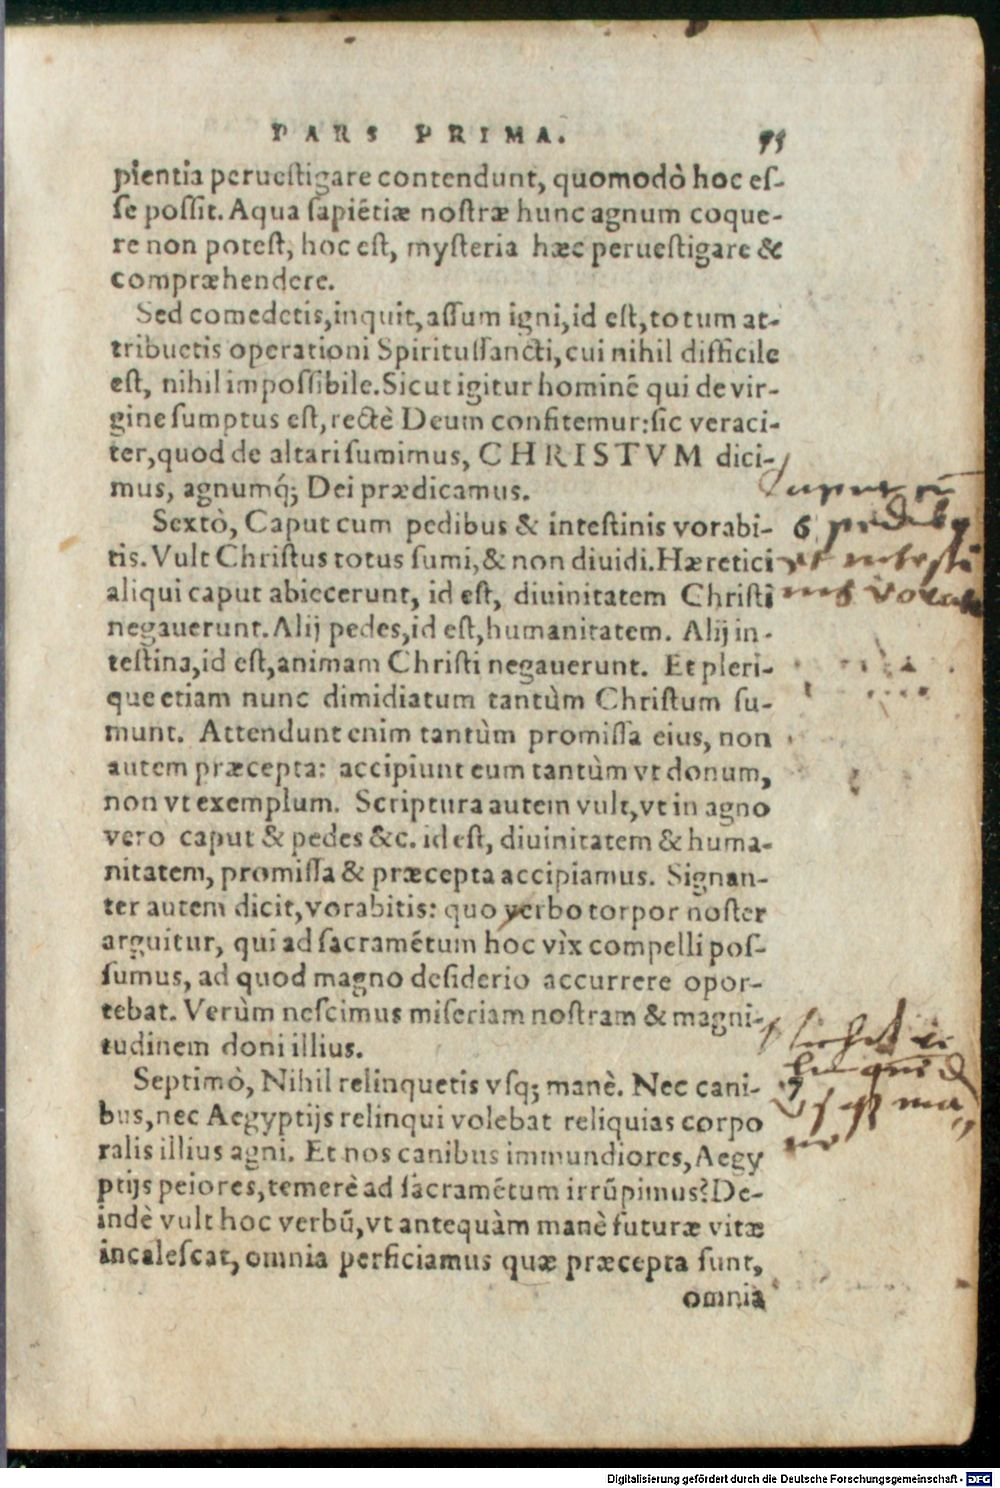 PARS PRIMA. 95
pientia peruestigare contendunt, quomodò hoc es-
se possit. Aqua sapiētiæ nostræ hunc agnum coque-
re non potest, hoc est, mysteria hæc peruestigare &
compræhendere.
Sed comedetis, inquit, assum igni, id est, totum at-
tribuetis operationi Spiritussancti, cui nihil difficile
est, nihil impossibile. Sicut igitur hominē qui de vir-
gine sumptus est, rectè Deum confitemur: sic veraci-
ter, quod de altari sumimus, CHRISTVM dici-
mus, agnumq́; Dei prædicamus.
Sextò, Caput cum pedibus & intestinis vorabi-
tis. Vult Christus totus sumi, & non diuidi. Hæretici
aliqui caput abiecerunt, id est, diuinitatem Christi
negauerunt. Alij pedes, id est, humanitatem. Alij in-
testina, id est, animam Christi negauerunt. Et pleri-
que etiam nunc dimidiatum tantùm Christum su-
munt. Attendunt enim tantùm promissa eius, non
autem præcepta: accipiunt eum tantùm vt donum,
non vt exemplum. Scriptura autem vult, vt in agno
vero caput & pedes &c. id est, diuinitatem & huma-
nitatem, promissa & præcepta accipiamus. Signan-
ter autem dicit, vorabitis: quo verbo torpor noster
arguitur, qui ad sacramētum hoc vìx compelli pos-
sumus, ad quod magno desiderio accurrere opor-
tebat. Verùm nescimus miseriam nostram & magni-
tudinem doni illius.
Septimò, Nihil relinquetis vsq; manè. Nec cani-
bus, nec Aegyptijs relinqui volebat reliquias corpo
ralis illius agni. Et nos canibus immundiores, Aegy
ptijs peiores, temerè ad sacramētum irrūpimus? De-
indè vult hoc verbū, vt antequàm manè futuræ vitæ
incalescat, omnia perficiamus quæ præcepta sunt,
omnia
6
et intesti
nis vorab
7
Digitalisierung gefördert durch die Deutsche Forschungsgemeinschaft - DFG